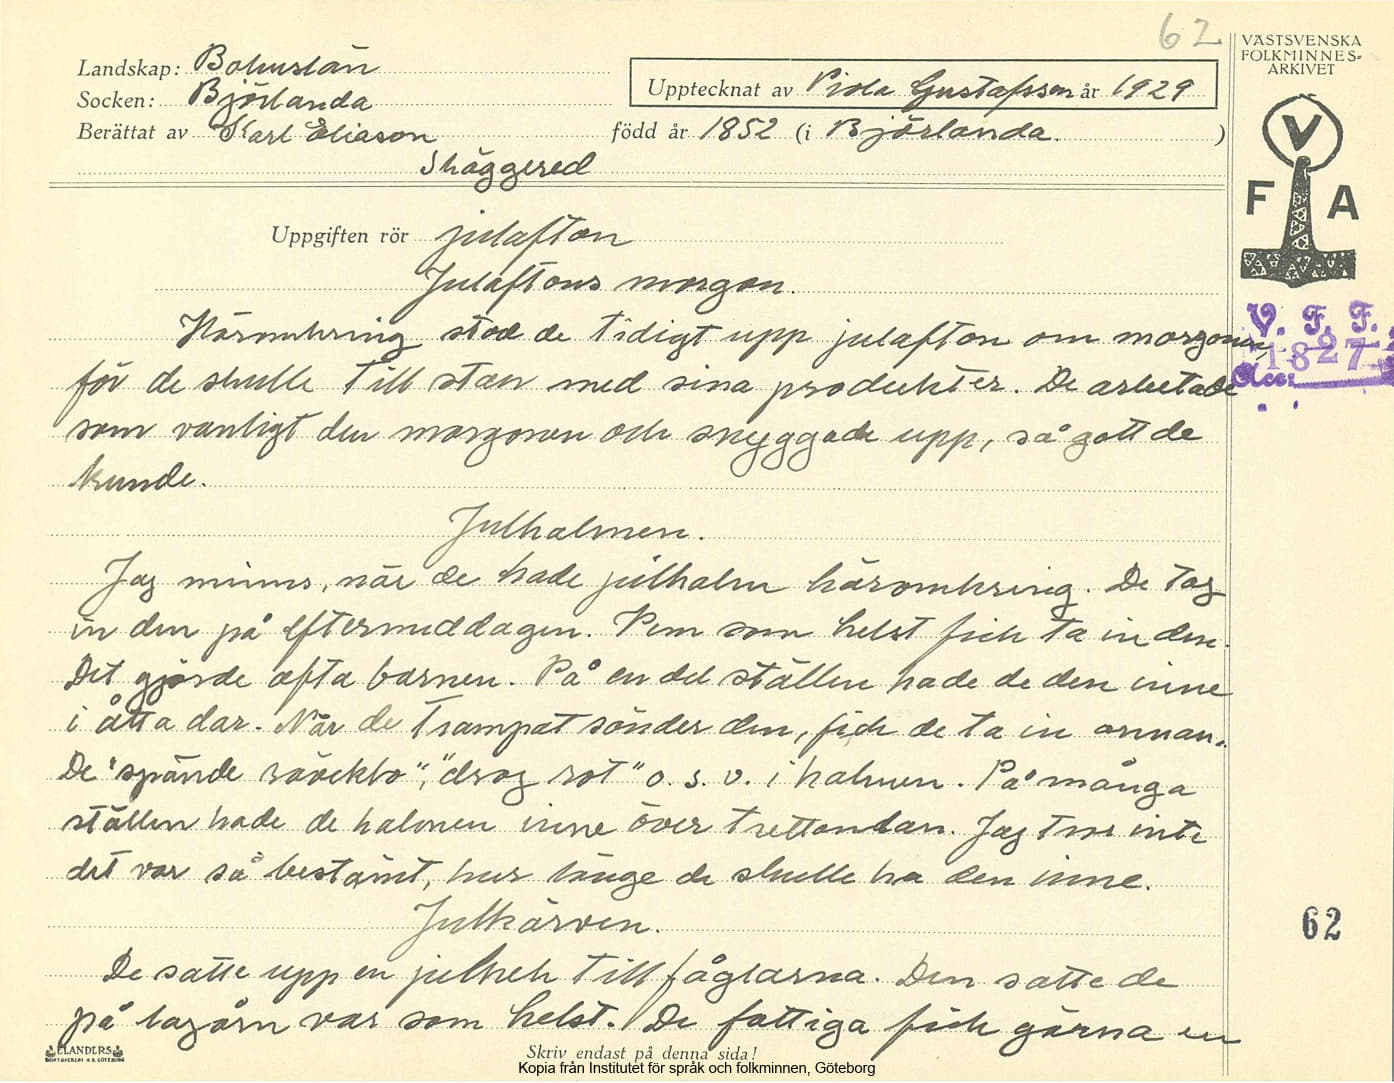 62
VÄSTSVENSKA
FOLKMINNES-
ARKIVET
Landskap: Bohuslän
Socken: Björlanda
Upptecknat av Viola Gustafsson år 1929
Berättat av Karl Eliason född år 1852 (i Björlanda. )
Skäggered
V
F A
Uppgiften rör julafton
Julaftons morgon.
V. F. F.
1827
Acc:
Häromkring stod de tidigt upp julafton om morgonen
för de skulle till stan med sina produkter. De arbetade
som vanligt den morgonen och snyggade upp, så gott de
kunde.
Julhalmen.
Jag minns, när de hade julhalm häromkring. De tog
in den på eftermiddagen. Vem som helst fick ta in den.
Det gjorde ofta barnen. På en del ställen hade de den inne
i åtta dar. När de trampat sönder den, fick de ta in annan.
De "spände rävekto", "drog rot" o. s. v. i halmen. På många
ställen hade de halmen inne över trettondan. Jag tror inte
det var så bestämt, hur länge de skulle ha den inne.
Julkärven.
62
De satte upp en julkek till fåglarna. Den satte de
på lagårn var som helst. De fattiga fick gärna en
ELANDERS
Skriv endast på denna sida!
Kopia från Institutet för språk och folkminnen, Göteborg